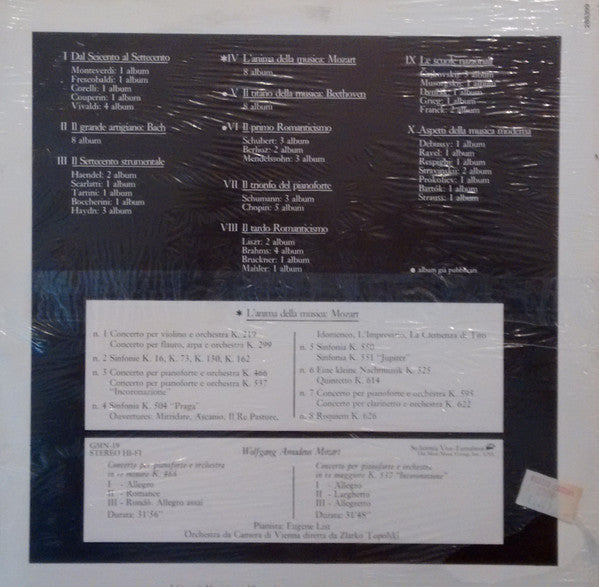 I Dal Seicento al Settecento
Monteverdi: 1 album
Frescobaldi: 1 album
Corelli: 1 album
Couperin: 1 album
Vivaldi: 4 album
II Il grande artigiano: Bach
8 album
III Il Settecento strumentale
Haendel: 2 album
Scarlatti: 1 album
Tartini: 1 album
Boccherini: 1 album
Haydn: 3 album
*IV L'anima della musica: Mozart
8 album
●V Il titano della musica: Beethoven
8 album
●VI Il primo Romanticismo
Schubert: 3 album
Berlioz: 2 album
Mendelssohn: 3 album
VII Il trionfo del pianoforte
Schumann: 3 album
Chopin: 5 album
VIII Il tardo Romanticismo
Liszt: 2 album
Brahms: 4 album
Bruckner: 1 album
Mahler: 1 album
IX Le scuole nazionali
album
1 album
1 album
Grieg: 1 album
Franck: 2 album
X Aspetti della musica moderna
Debussy: 1 album
Ravel: 1 album
Respighi: 1 album
Stravinski: 2 album
Prokofiev: 1 album
Bartók: 1 album
Strauss: 1 album
● album già pubblicati
* L'anima della musica: Mozart
n. 1 Concerto per violino e orchestra K. 219
Concerto per flauto, arpa e orchestra K. 299
n. 2 Sinfonie K. 16, K. 73, K. 130, K. 162
n. 3 Concerto per pianoforte e orchestra K. 466
Concerto per pianoforte e orchestra K. 537
"Incoronazione"
n. 4 Sinfonia K. 504 "Praga"
Ouvertures: Mitridate, Ascanio, Il Re Pastore,
Idomeneo, L'Impresario, La Clemenza di Tito
n. 5 Sinfonia K. 550
Sinfonia K. 551 "Jupiter"
n. 6 Eine kleine Nachtmusik K. 525
Quintetto K. 614
n. 7 Concerto per pianoforte e orchestra K. 595
Concerto per clarinetto e orchestra K. 622
n. 8 Requiem K. 626
GMN-19
STEREO HI-FI
Wolfgang Amadeus Mozart
Concerto per pianoforte e orchestra
in re minore K. 466
I - Allegro
II - Romance
III - Rondò. Allegro assai
Durata: 31'56"
Concerto per pianoforte e orchestra
in re maggiore K. 537 "Incoronazione"
I - Allegro
II - Larghetto
III - Allegretto
Durata: 31'48"
Pianista: Eugene List
Orchestra da Camera di Vienna diretta da Zlatko Topolski